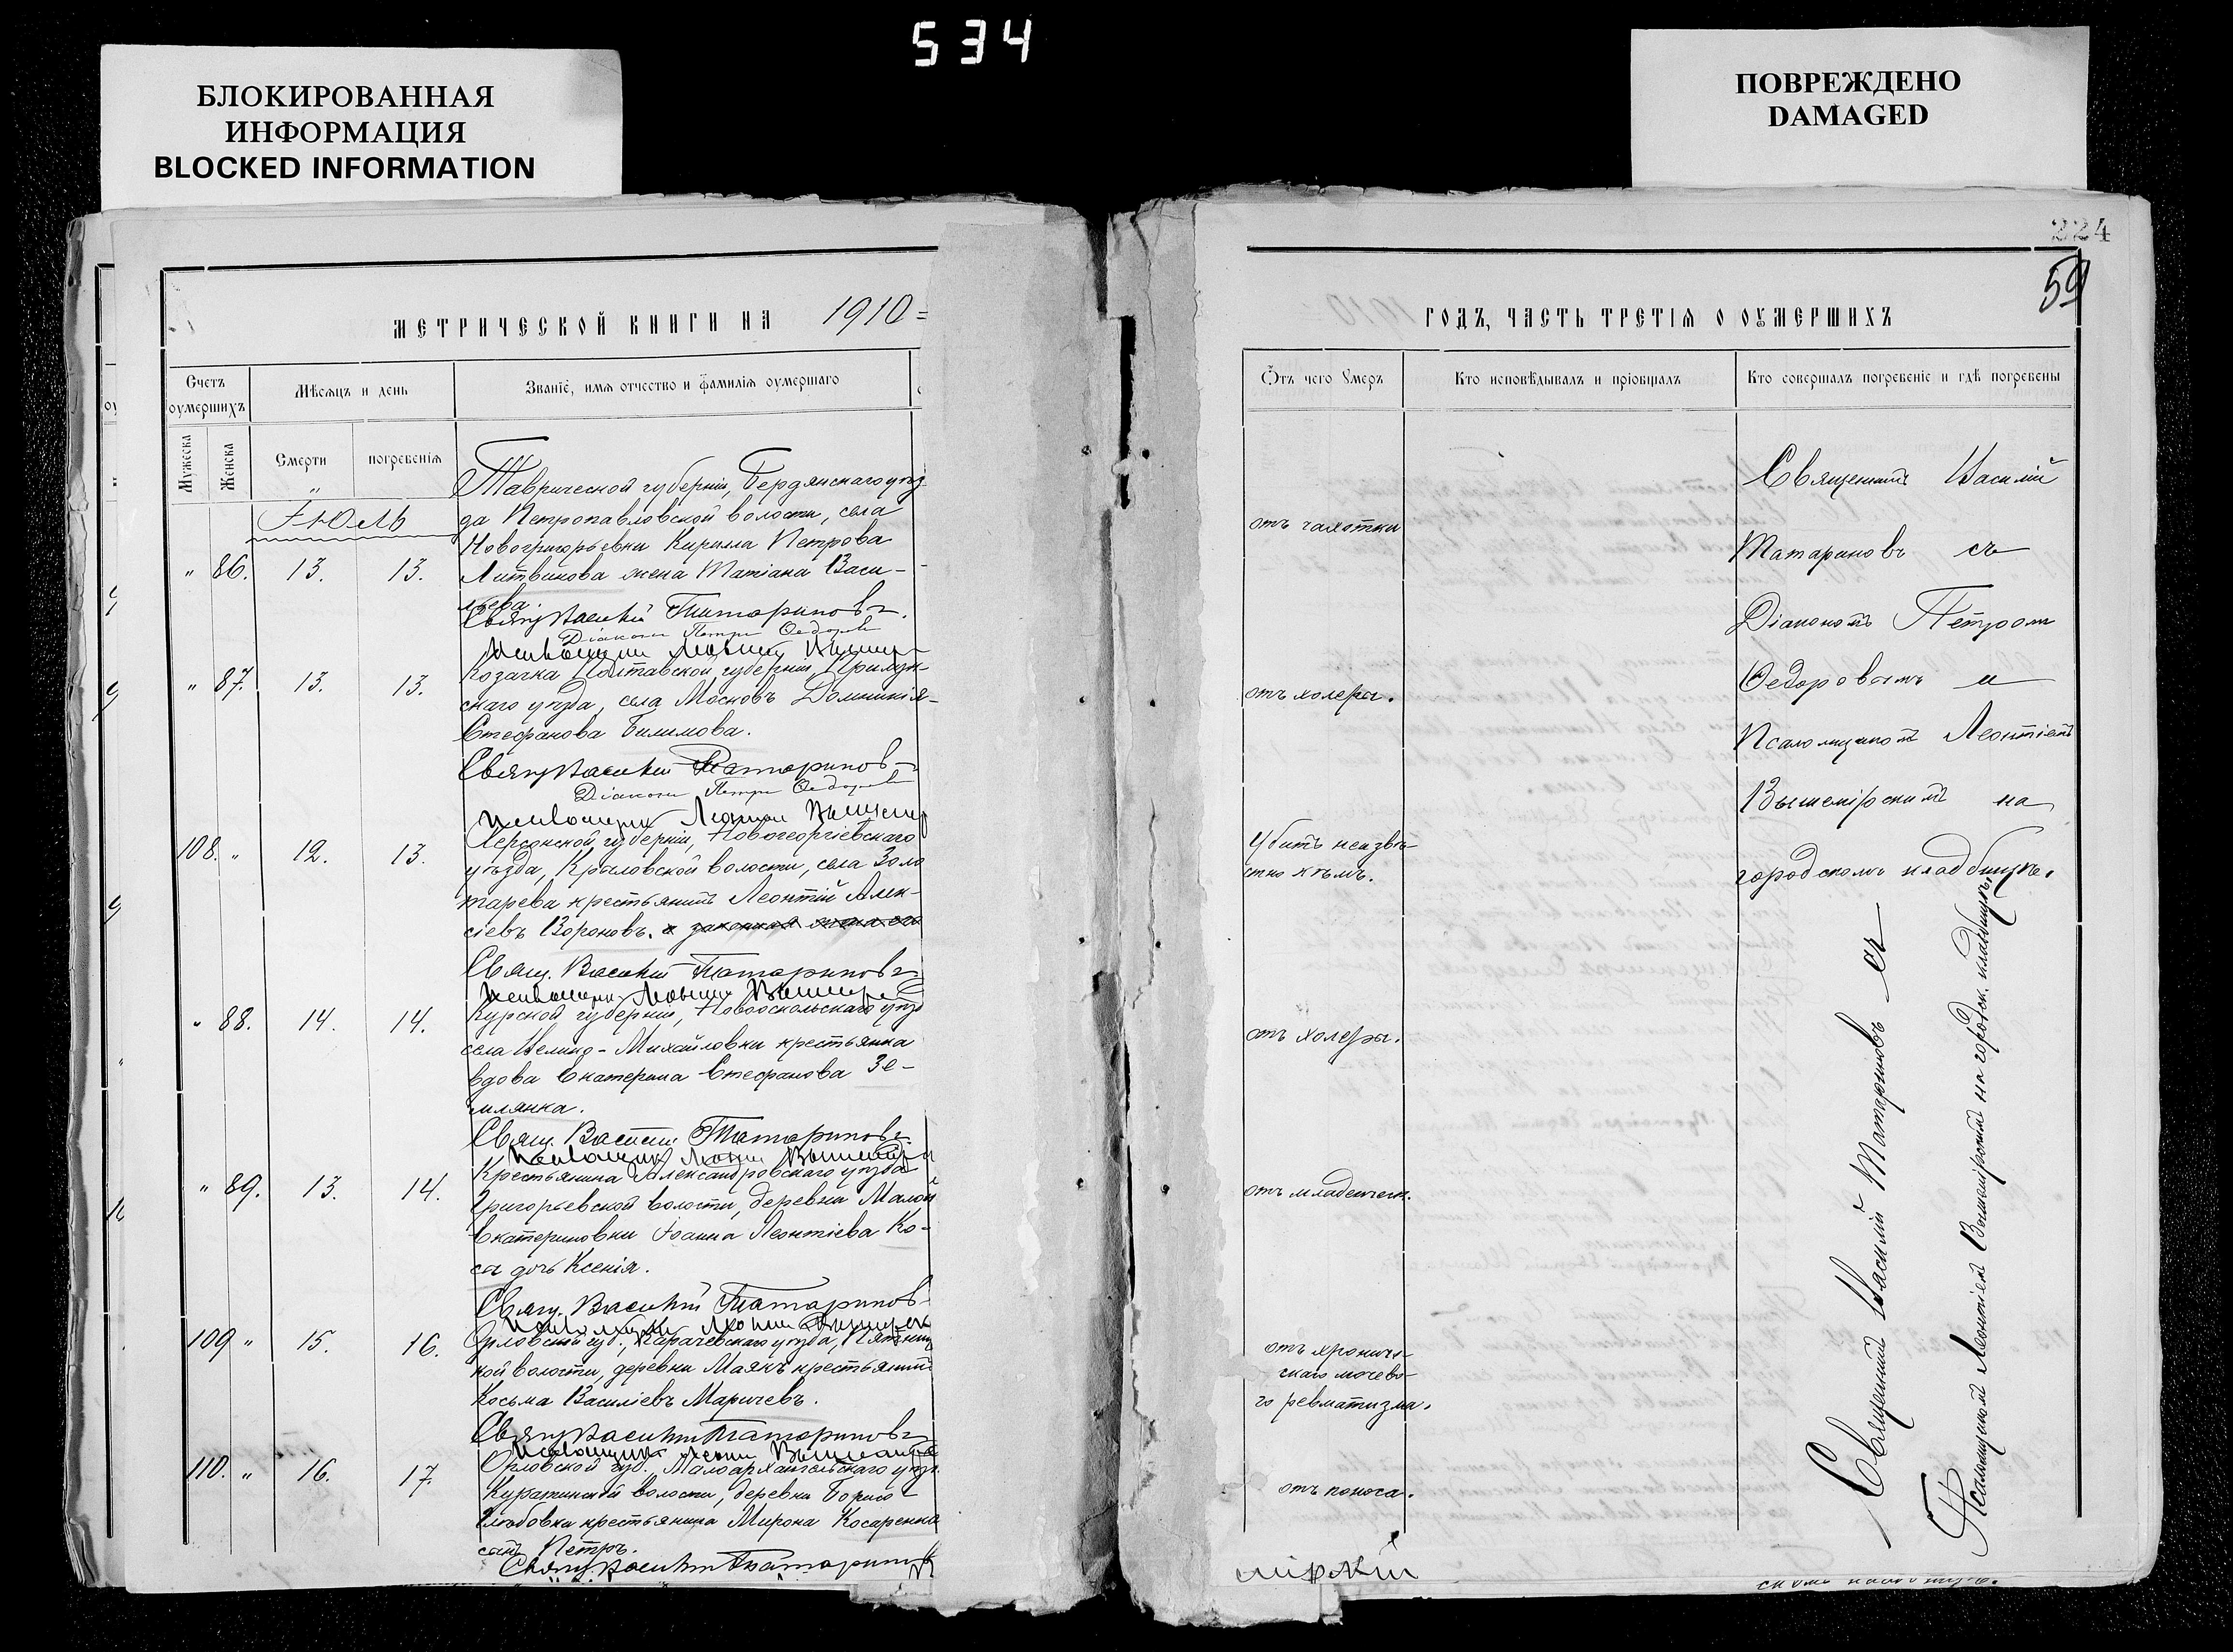 534
БЛОКИРОВАННАЯ
ИНФОРМАЦИЯ
BLOCKED INFORMATION
ПОВРЕЖДЕНО
DAMAGED
224
59
МЕТРИЧЕСКОЙ КНИГИ НА 1910
Счетъ
оумершихъ
Мѣсяцъ и день
Званіе, имя отчество и фамилія оумершаго
Мужеска
Женска
Смерти
погребенія
Таврической губерніи, Бердянскаго уѣз
Іюль
да Петропавловской волости, села
Новогригорьевки Кирилла Петрова
" 86. 13. 13. Литвинова жена Татіана Васи-
льева.
Свящ Василій Татариновъ.
Діаконъ Петръ Федоровъ
Псаломщикъ Леонтій
Козачка Полтавской губерніи, Прилук-
" 87. 13. 13.
скаго уѣзда, села Московъ Домникія
Стефанова Билимова.
Свящ Василій Татариновъ
Діаконъ Петръ Федоровъ
Псаломщикъ Леонтій
Херсонской губерніи, Новогеоргіевскаго
108. " 12. 13. уѣзда, Крыловской волости, села Золо
тарева крестьянинъ Леонтій Алек-
сіевъ Вороновъ. и законная жена его
Свящ. Василій Татариновъ
Псаломщикъ Леонтій
Курской губерніи, Новооскольскаго уѣз
" 88. 14. 14.
села Велико-Михайловки крестьянка
вдова Екатерина Стефанова Зе-
млянка.
Свящ. Василій Татариновъ.
Псаломщикъ Леонтій
Крестьянина Александровскаго уѣзда
" 89. 13. 14. Григорьевской волости, деревни Малой
Екатериновки Іоанна Леонтіева Ко-
са дочь Ксенія.
Свящ. Василій Татариновъ
Псаломщикъ Леонтій
109 " 15. 16. Орловской губ., Карачевскаго уѣзда,
кой волости, деревни Маякъ крестьянинъ
Косьма Василіевъ Маричевъ.
Свящ Василій Татариновъ
Псаломщикъ Леонтій
110. " 16. 17. Орловской губ. Малоархангельскаго уѣз.
волости, деревни Борисо
Глѣбовки крестьянина Мирона Косаренка
сынъ Петръ.
Свящ. Василій Татариновъ
ГОДЪ, ЧАСТЬ ТРЕТІЯ О ОУМЕРШИХЪ
Отъ чего умеръ
Кто исповѣдывалъ и пріобщалъ
Кто совершалъ погребеніе и гдѣ погребены
отъ чахотки
отъ холеры.
Убитъ неизвѣ-
стно кѣмъ.
отъ холеры.
отъ младенческ.
отъ хрониче-
скаго мочево-
го ревматизма.
отъ поноса.
Священникъ Василій
Татариновъ съ
Діакономъ Петромъ
Федоровымъ и
Псаломщикомъ Леонтіемъ
Вышемірскимъ на
городскомъ кладбищѣ.
Священникъ Василій Татариновъ съ
Псаломщикомъ Леонтіемъ Вышемірскимъ на городск. кладбищѣ.
мірскій